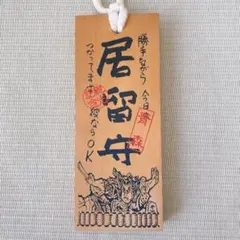 勝手ながら 今日
居留守
つかってます
ならOK